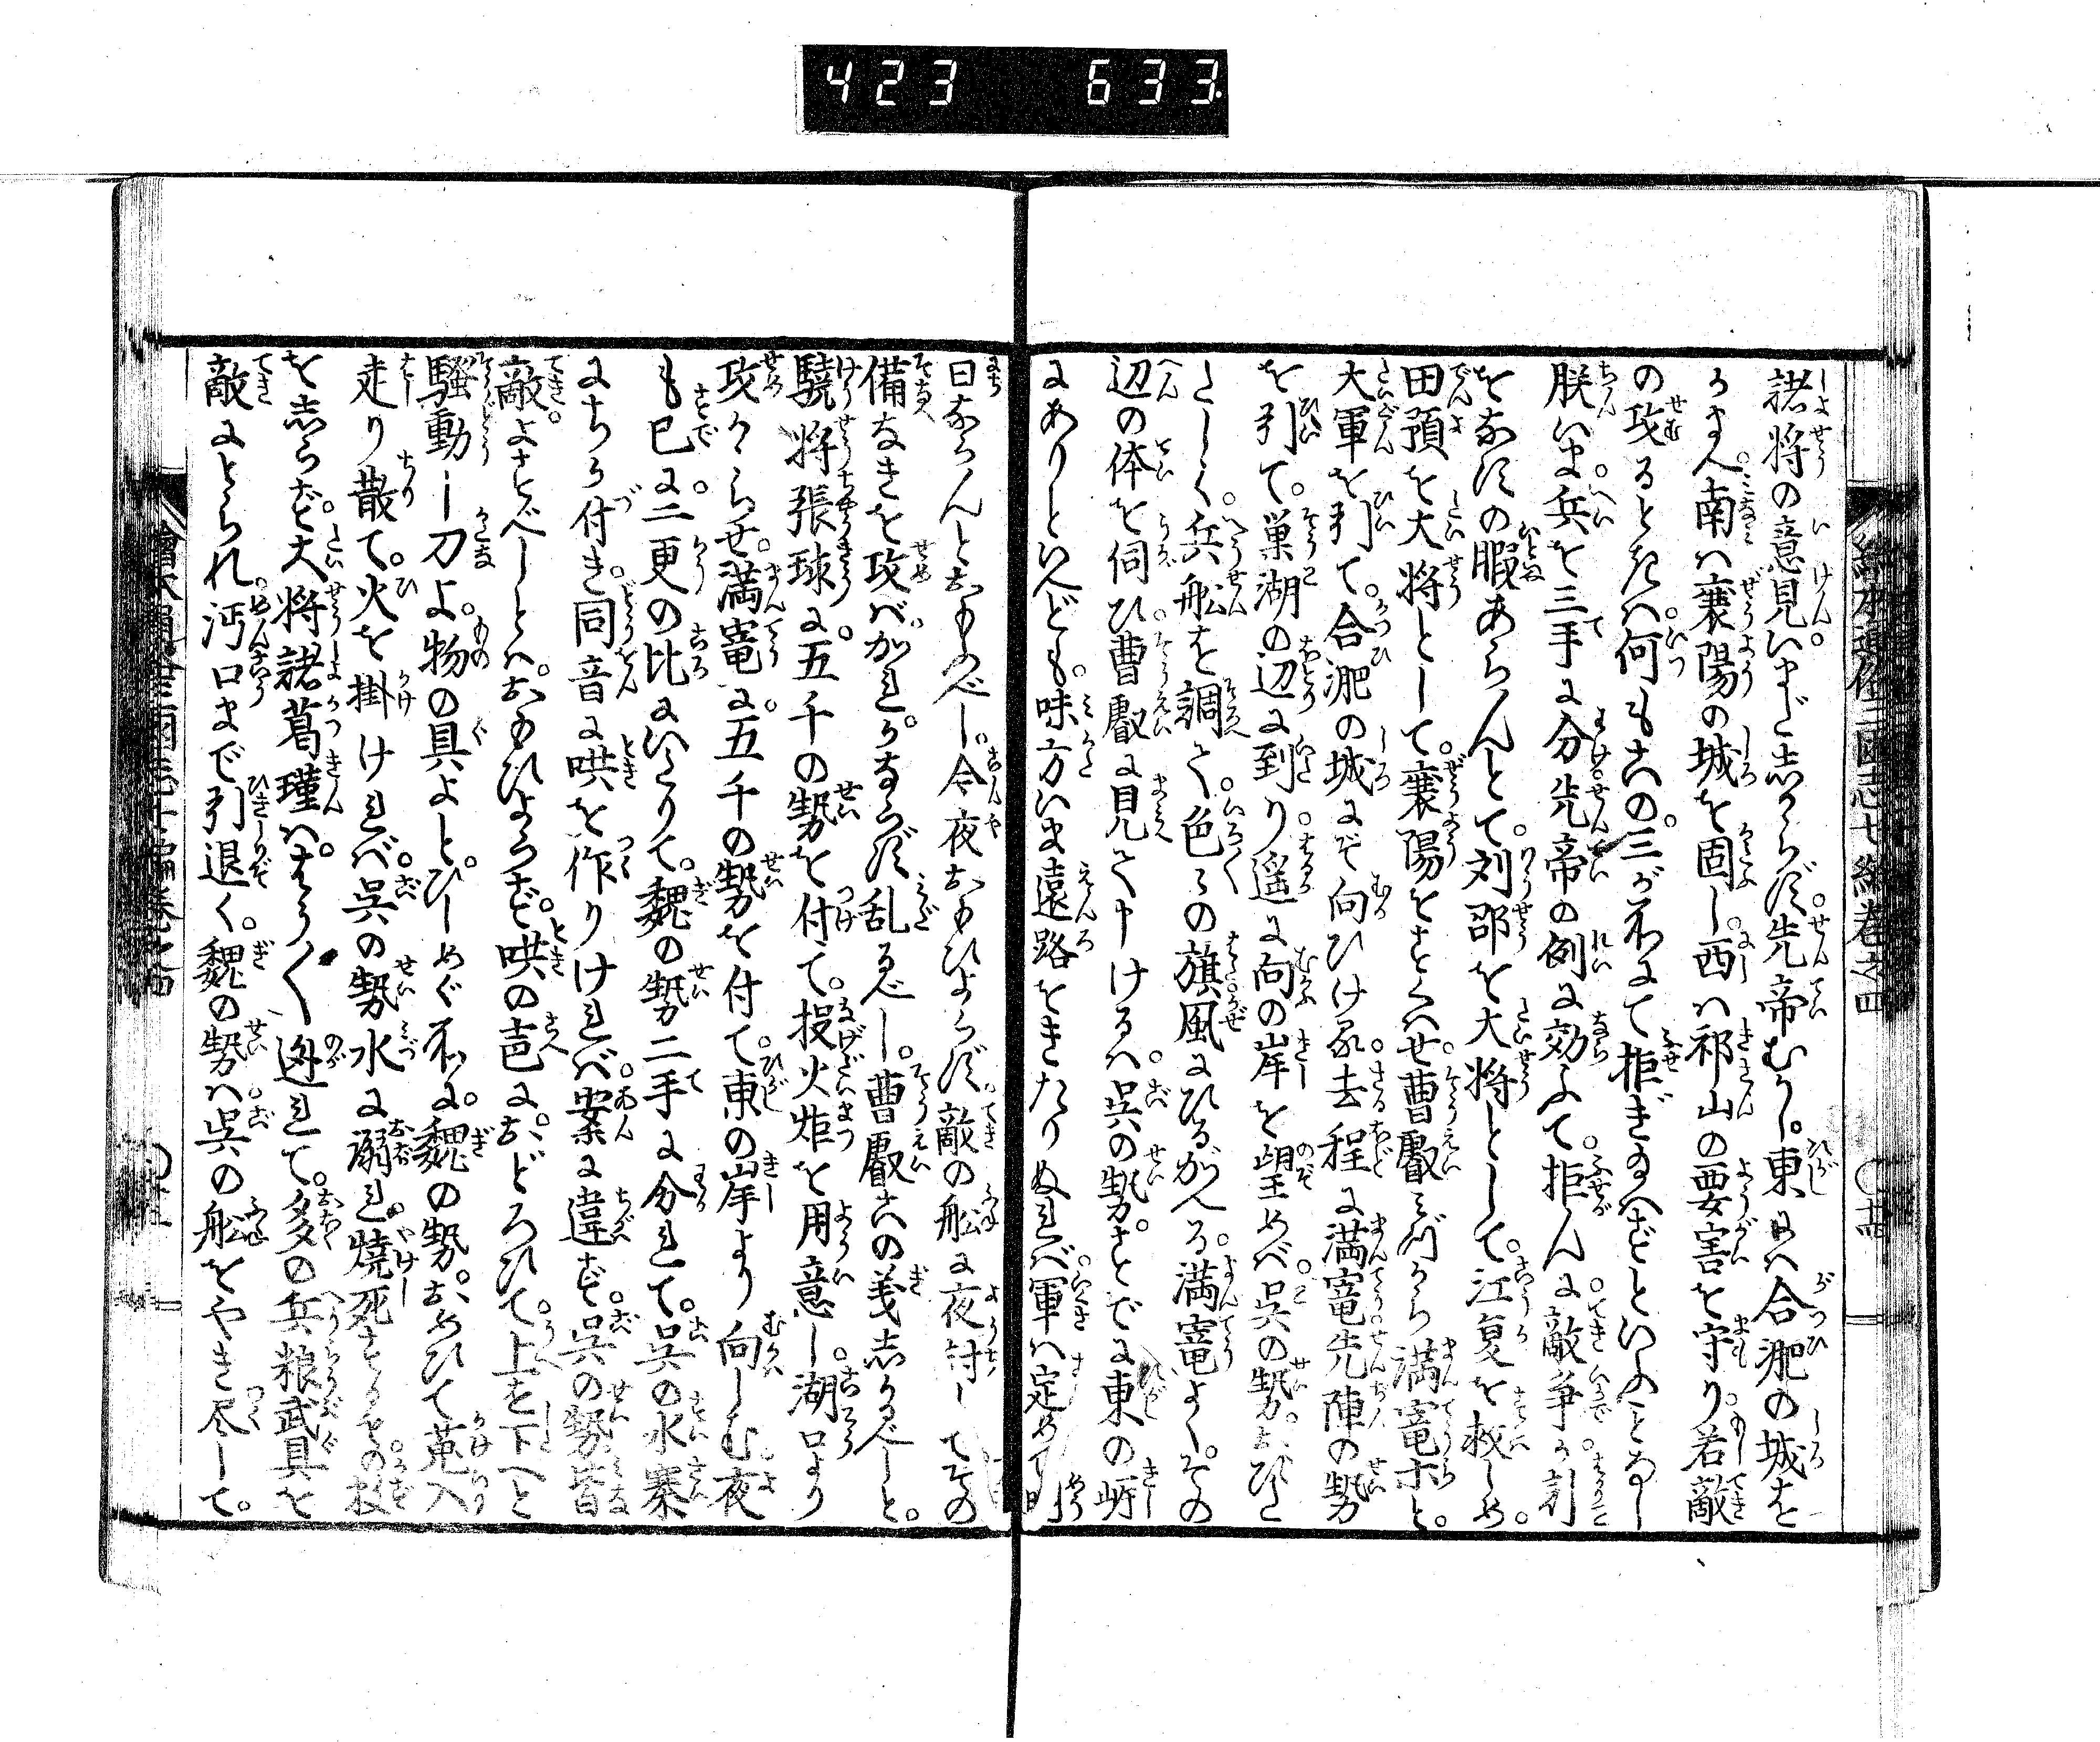 423 633
諸将の意見いまだ志からず先帝むかし東には合淝の城を
かまへ南は襄陽の城を固し西は祁山の要害を守り若敵
の攻るときは何も此の三が所にて拒ぎ給へざといふことなし
朕いま兵を三手に分先帝の例に効ふて拒んに敵争か引
をなすの暇あらんとて刘邵を大将として江夏を救しめ
田預を大将として襄陽をすくはせ曹叡みづから満寵等と
大軍を引て合淝の城にぞ向ひける去程に満寵先陣の勢
を引て巣湖の辺に到り遥に向の岸を望めば呉の勢
兵舩を調て色々の旗風にひるがへる満寵よくその
辺の体を伺ひ曹叡に見て申けるは呉の勢すでに東の岸
にありといへども味方いま遠路をきたりぬれば軍は定めて明
日ならんとおもふべし今夜おもひよらず敵の舩に夜討してその
備なきを攻ばかれかならず乱るべし曹叡此の義志かるべしと
驍将張球に五千の勢を付て投火炬を用意し湖口より
攻からせ満寵に五千の勢を付て東の岸より向しむ夜
も已に二更の比にいたりて魏の勢二手に分れて呉の水寨
にちか付き同音に哄を作りければ案に違ず呉の勢皆
敵よすべしとはおもひよらず哄の声におどろひて上を下へと
騒動し刀よ物の具よとひしめく所に魏の勢おめひて蒐入
走り散て火を掛ければ呉の勢水に溺れ焼死するもの数
を志らず大将諸葛瑾はやう〳〵迯れて多の兵粮武具を
敵にとられ沔口まで引退く魏の勢は呉の舩をやき尽して